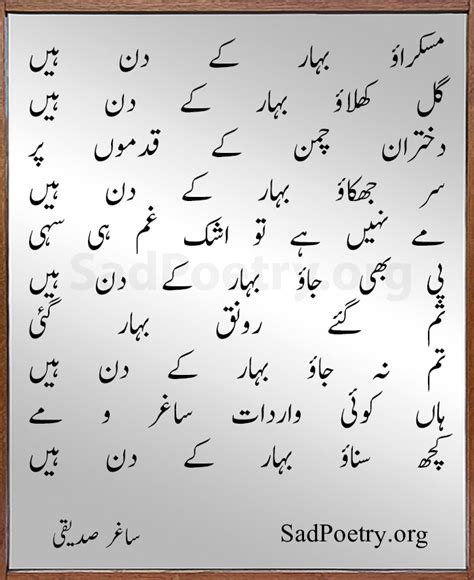 مسکراؤ بہار کے دن ہیں
گل کھلاؤ بہار کے دن ہیں
دختران چمن کے قدموں پر
سر جھکاؤ بہار کے دن ہیں
مے نہیں ہے تو اشک غم ہی سہی
پی بھی جاؤ بہار کے دن ہیں
تم گئے رونق بہار گئی
تم نہ جاؤ بہار کے دن ہیں
ہاں کوئی واردات ساغر و مے
کچھ سناؤ بہار کے دن ہیں
ساغر صدیقی
SadPoetry.org
SadPoetry.org